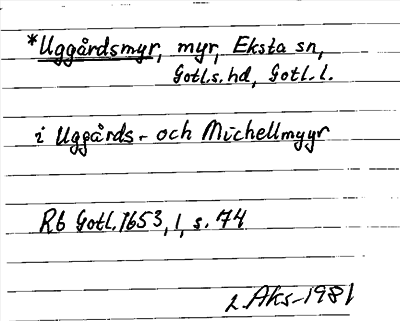 *Uggårdsmyr, myr, Eksta sn,
Gotl.s. hd, Gotl. l.
i Uggårds- och Michellmyyr
Rb Gotl. 1653, 1, s. 74
L. Aks-1981